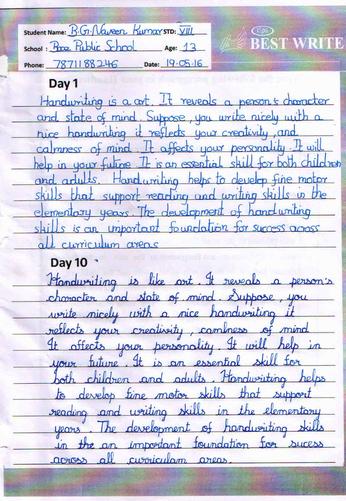 Student Name: B.G. Naveen Kumar STD: VIII
School: Public School Age: 13
Phone: 7871188246 Date: 19.05.16
BEST WRITE
Day 1
Handwriting is a art. It reveals a person's character
and state of mind. Suppose, you write nicely with a
nice handwriting it reflects your creativity, and
calmness of mind. It affects your personality. It will
help in your future. It is an essential skill for both children
and adults. Handwriting helps to develop fine motor
skills that support reading and writing skills in the
elementary years. The development of handwriting
skills is an important foundation for success across
all curriculum areas
Day 10
Handwriting is like art. It reveals a person's
character and state of mind. Suppose, you
write nicely with a nice handwriting it
reflects your creativity, camlness of mind
It affects your personality. It will help in
your future. It is an essential skill for
both children and adults. Handwriting helps
to develop fine motor skills that support
reading and writing skills in the elementary
years. The development of handwriting skills
in the an important foundation for sucess
across all curriculam areas.